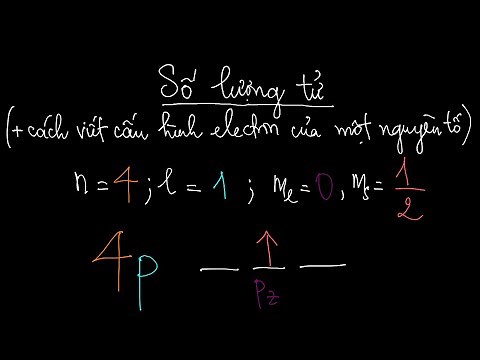 Số lượng tử
(+ cách viết cấu hình electron của một nguyên tố)
n = 4 ; l = 1 ; mₗ = 0 , mₛ = 1/2
4p _ ↑ _
p_z